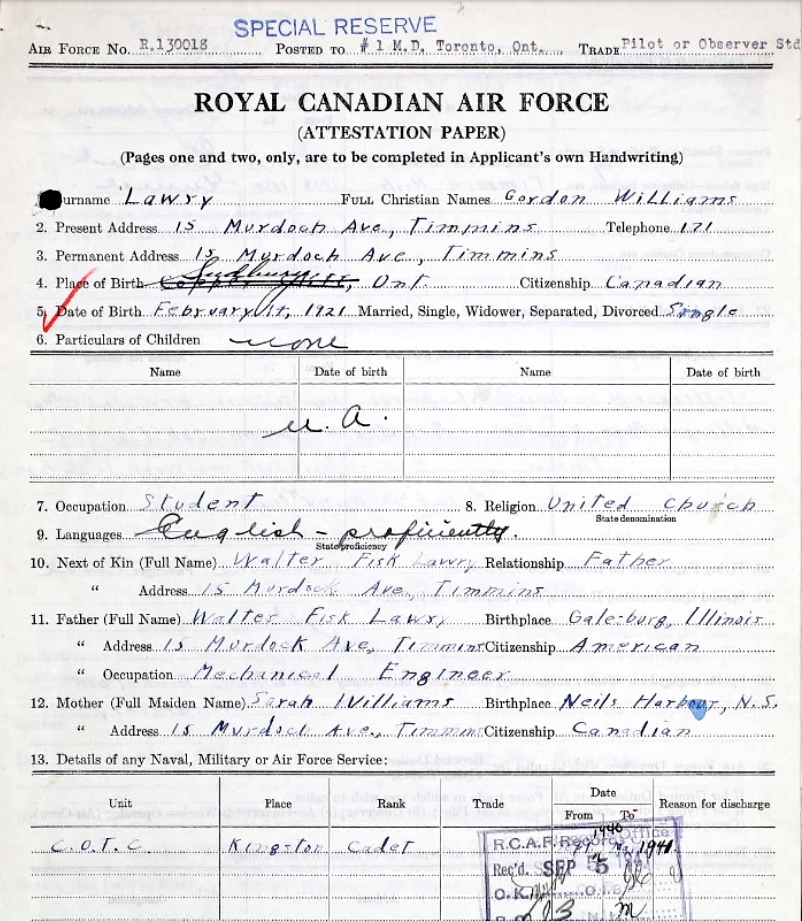 SPECIAL RESERVE
AIR FORCE No. R.130018 POSTED TO # 1 M.D. Toronto, Ont. TRADE Pilot or Observer Std
ROYAL CANADIAN AIR FORCE
(ATTESTATION PAPER)
(Pages one and two, only, are to be completed in Applicant's own Handwriting)
urname Lawry FULL Christian Names Gordon Williams
2. Present Address 15 Murdoch Ave., Timmins Telephone 171
3. Permanent Address 15 Murdoch Ave, Timmins
Sudbury
4. Place of Birth Copper Cliff, Ont. Citizenship Canadian
5. Date of Birth February 1st, 1921 Married, Single, Widower, Separated, Divorced Single
6. Particulars of Children none
Name Date of birth Name Date of birth
n. a.
7. Occupation Student 8. Religion United Church
State denomination
9. Languages English - proficiently.
State proficiency
10. Next of Kin (Full Name) Walter Fisk Lawry Relationship Father
" Address 15 Murdock Ave., Timmins
11. Father (Full Name) Walter Fisk Lawry Birthplace Galesburg, Illinois
" Address 15 Murdock Ave, Timmins Citizenship American
" Occupation Mechanical Engineer
12. Mother (Full Maiden Name) Sarah Williams Birthplace Neils Harbour, N.S.
" Address 15 Murdoch Ave., Timmins Citizenship Canadian
13. Details of any Naval, Military or Air Force Service:
Unit Place Rank Trade Date Reason for discharge
From To
C.O.T.C. Kingston Cadet 1940 1941
R.C.A.F. Records Office
Rec'd. SEP 5
O.K.